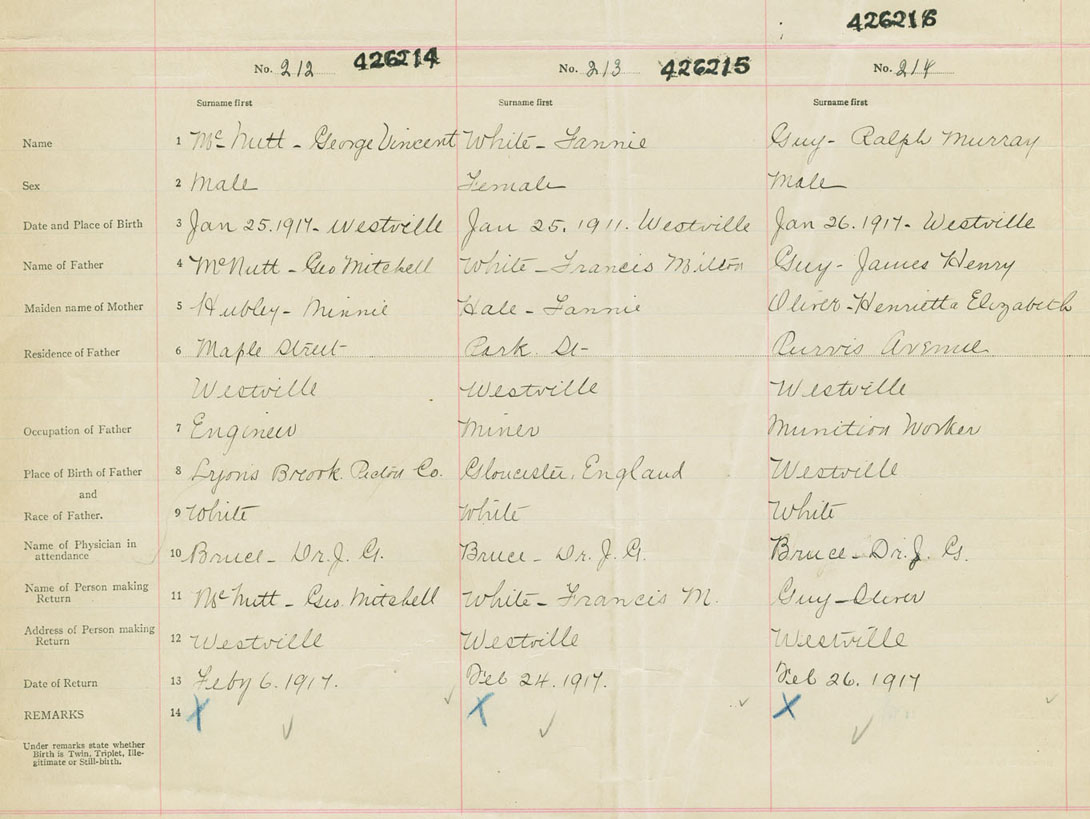 426216
No. 212 426214 No. 213 426215 No. 214
Surname first Surname first Surname first
Name 1 McNutt - George Vincent White - Fannie Guy - Ralph Murray
Sex 2 Male Female Male
Date and Place of Birth 3 Jan 25.1917 - Westville Jan 25. 1911. Westville Jan 26.1917 - Westville
Name of Father 4 McNutt - Geo Mitchell White - Francis Milton Guy - James Henry
Maiden name of Mother 5 Hubley - Minnie Hale - Fannie Oliver - Henrietta Elizabeth
Residence of Father 6 Maple Street Park St - Purvis Avenue
Westville Westville Westville
Occupation of Father 7 Engineer Miner Munition Worker
Place of Birth of Father 8 Lyons Broook. Pictou Co. Gloucester, England Westville
and
Race of Father. 9 White White White
Name of Physician in
attendance 10 Bruce - Dr. J. G. Bruce - Dr. J. G. Bruce - Dr. J. G.
Name of Person making
Return 11 McNutt - Geo. Mitchell White - Francis M. Guy - Oliver
Address of Person making
Return 12 Westville Westville Westville
Date of Return 13 Feby 6. 1917. Feb 24. 1917. Feb 26. 1917
REMARKS 14 X X X
Under remarks state whether
Birth is Twin, Triplet, Ille-
gitimate or Still-birth.